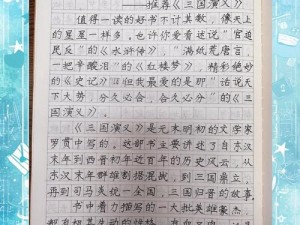 ——推荐《三国演义》
值得一读的好书不计其数，像天上
的星星一样多，也许你爱看这说"官逼
民反"的《水浒传》，"满纸荒唐言，
一把辛酸泪"的《红楼梦》，精彩绝妙
的《史记》但我最爱的是那"话说天
下大势，分久必合，合久必分"的《三
国演义》。
《三国演义》是元末明初的文学家
罗贯中写的。这部书主要讲述了自东汉
末年到西晋初年近百年的历史风云，从
东汉末年群雄割据混战，到三国鼎立，
再到司马炎统一全国，三国归晋的故事
书中着力描写的一大批英雄豪杰，